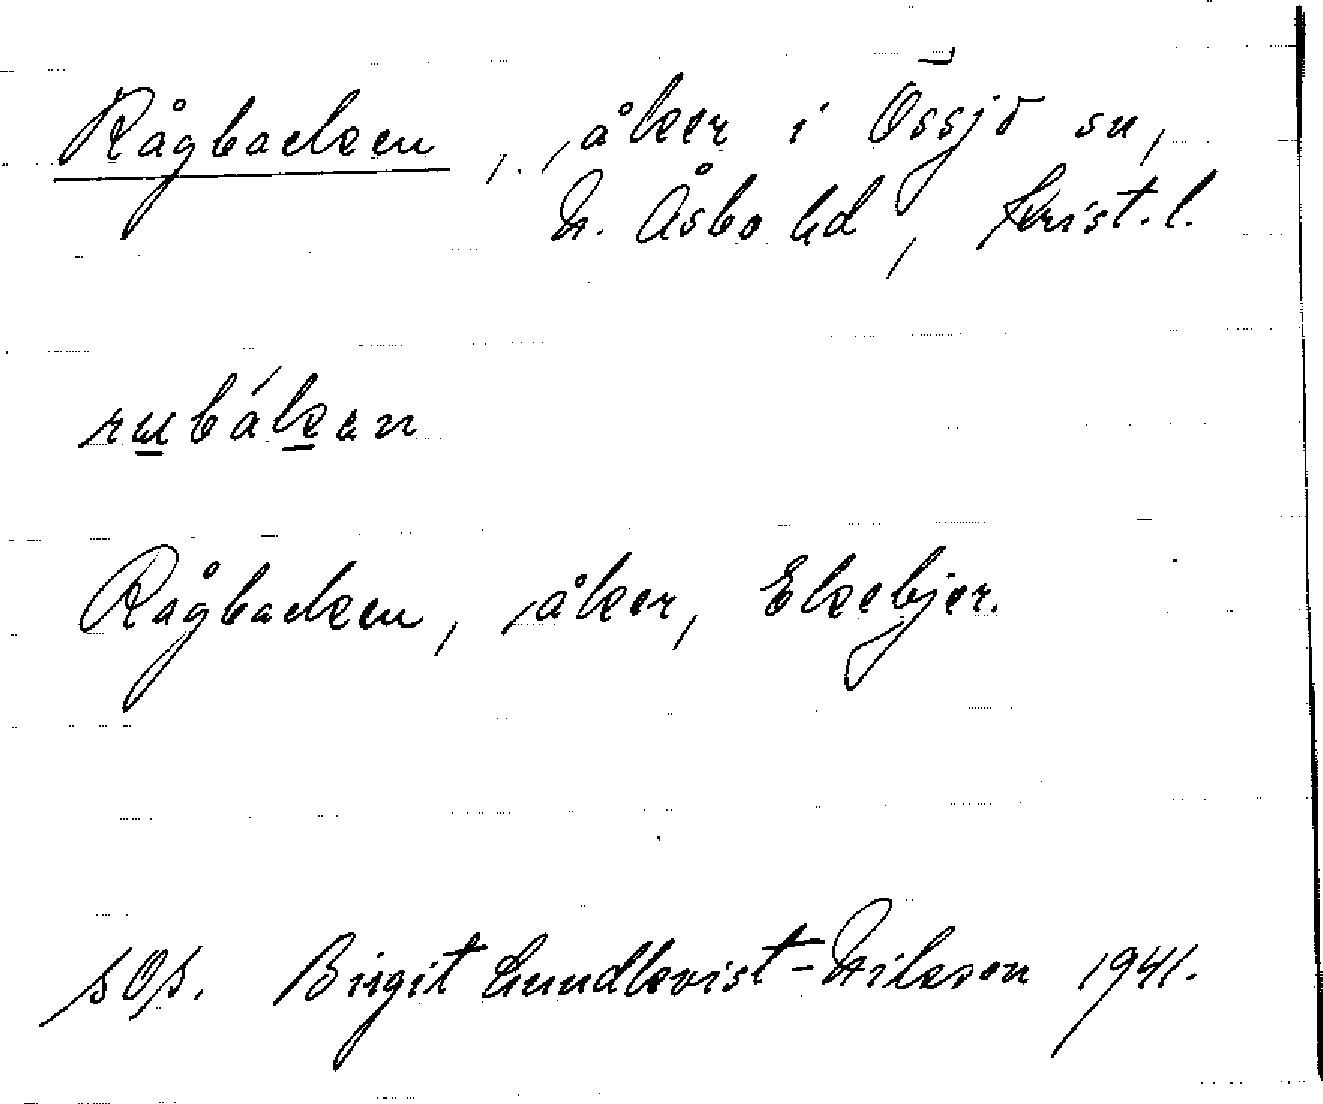 Rågbacken, åker i Össjö sn,
N. Åsbo hd, Krist. l.
rubákan
Rågbacken, åker, Ekebjer.
sOp. Birgit Lundkvist-Nilsson 1941.